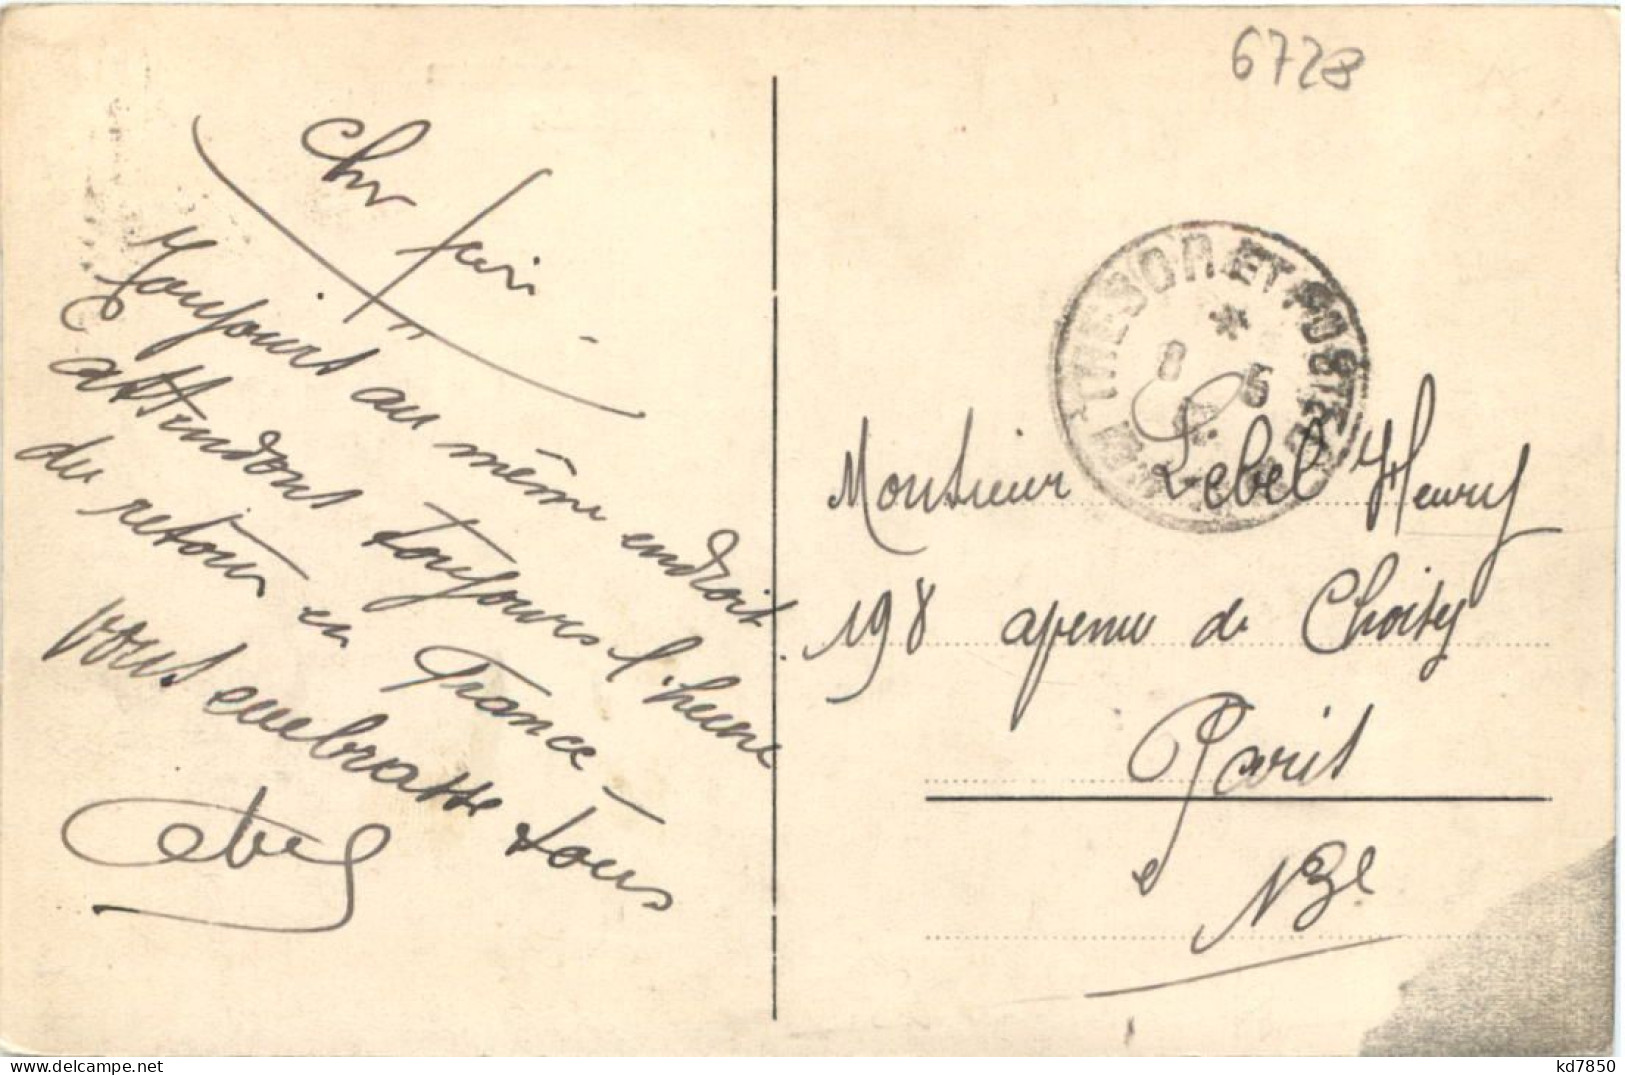 6728
Cher
Toujours au même endroit
attendons toujours l'heure
du retour en France
vous embrasse tous
Lebel
TRESOR ET POSTES
8 5
Monsieur Lebel Henry
198 avenue de Choisy
Paris
13e
kd7850